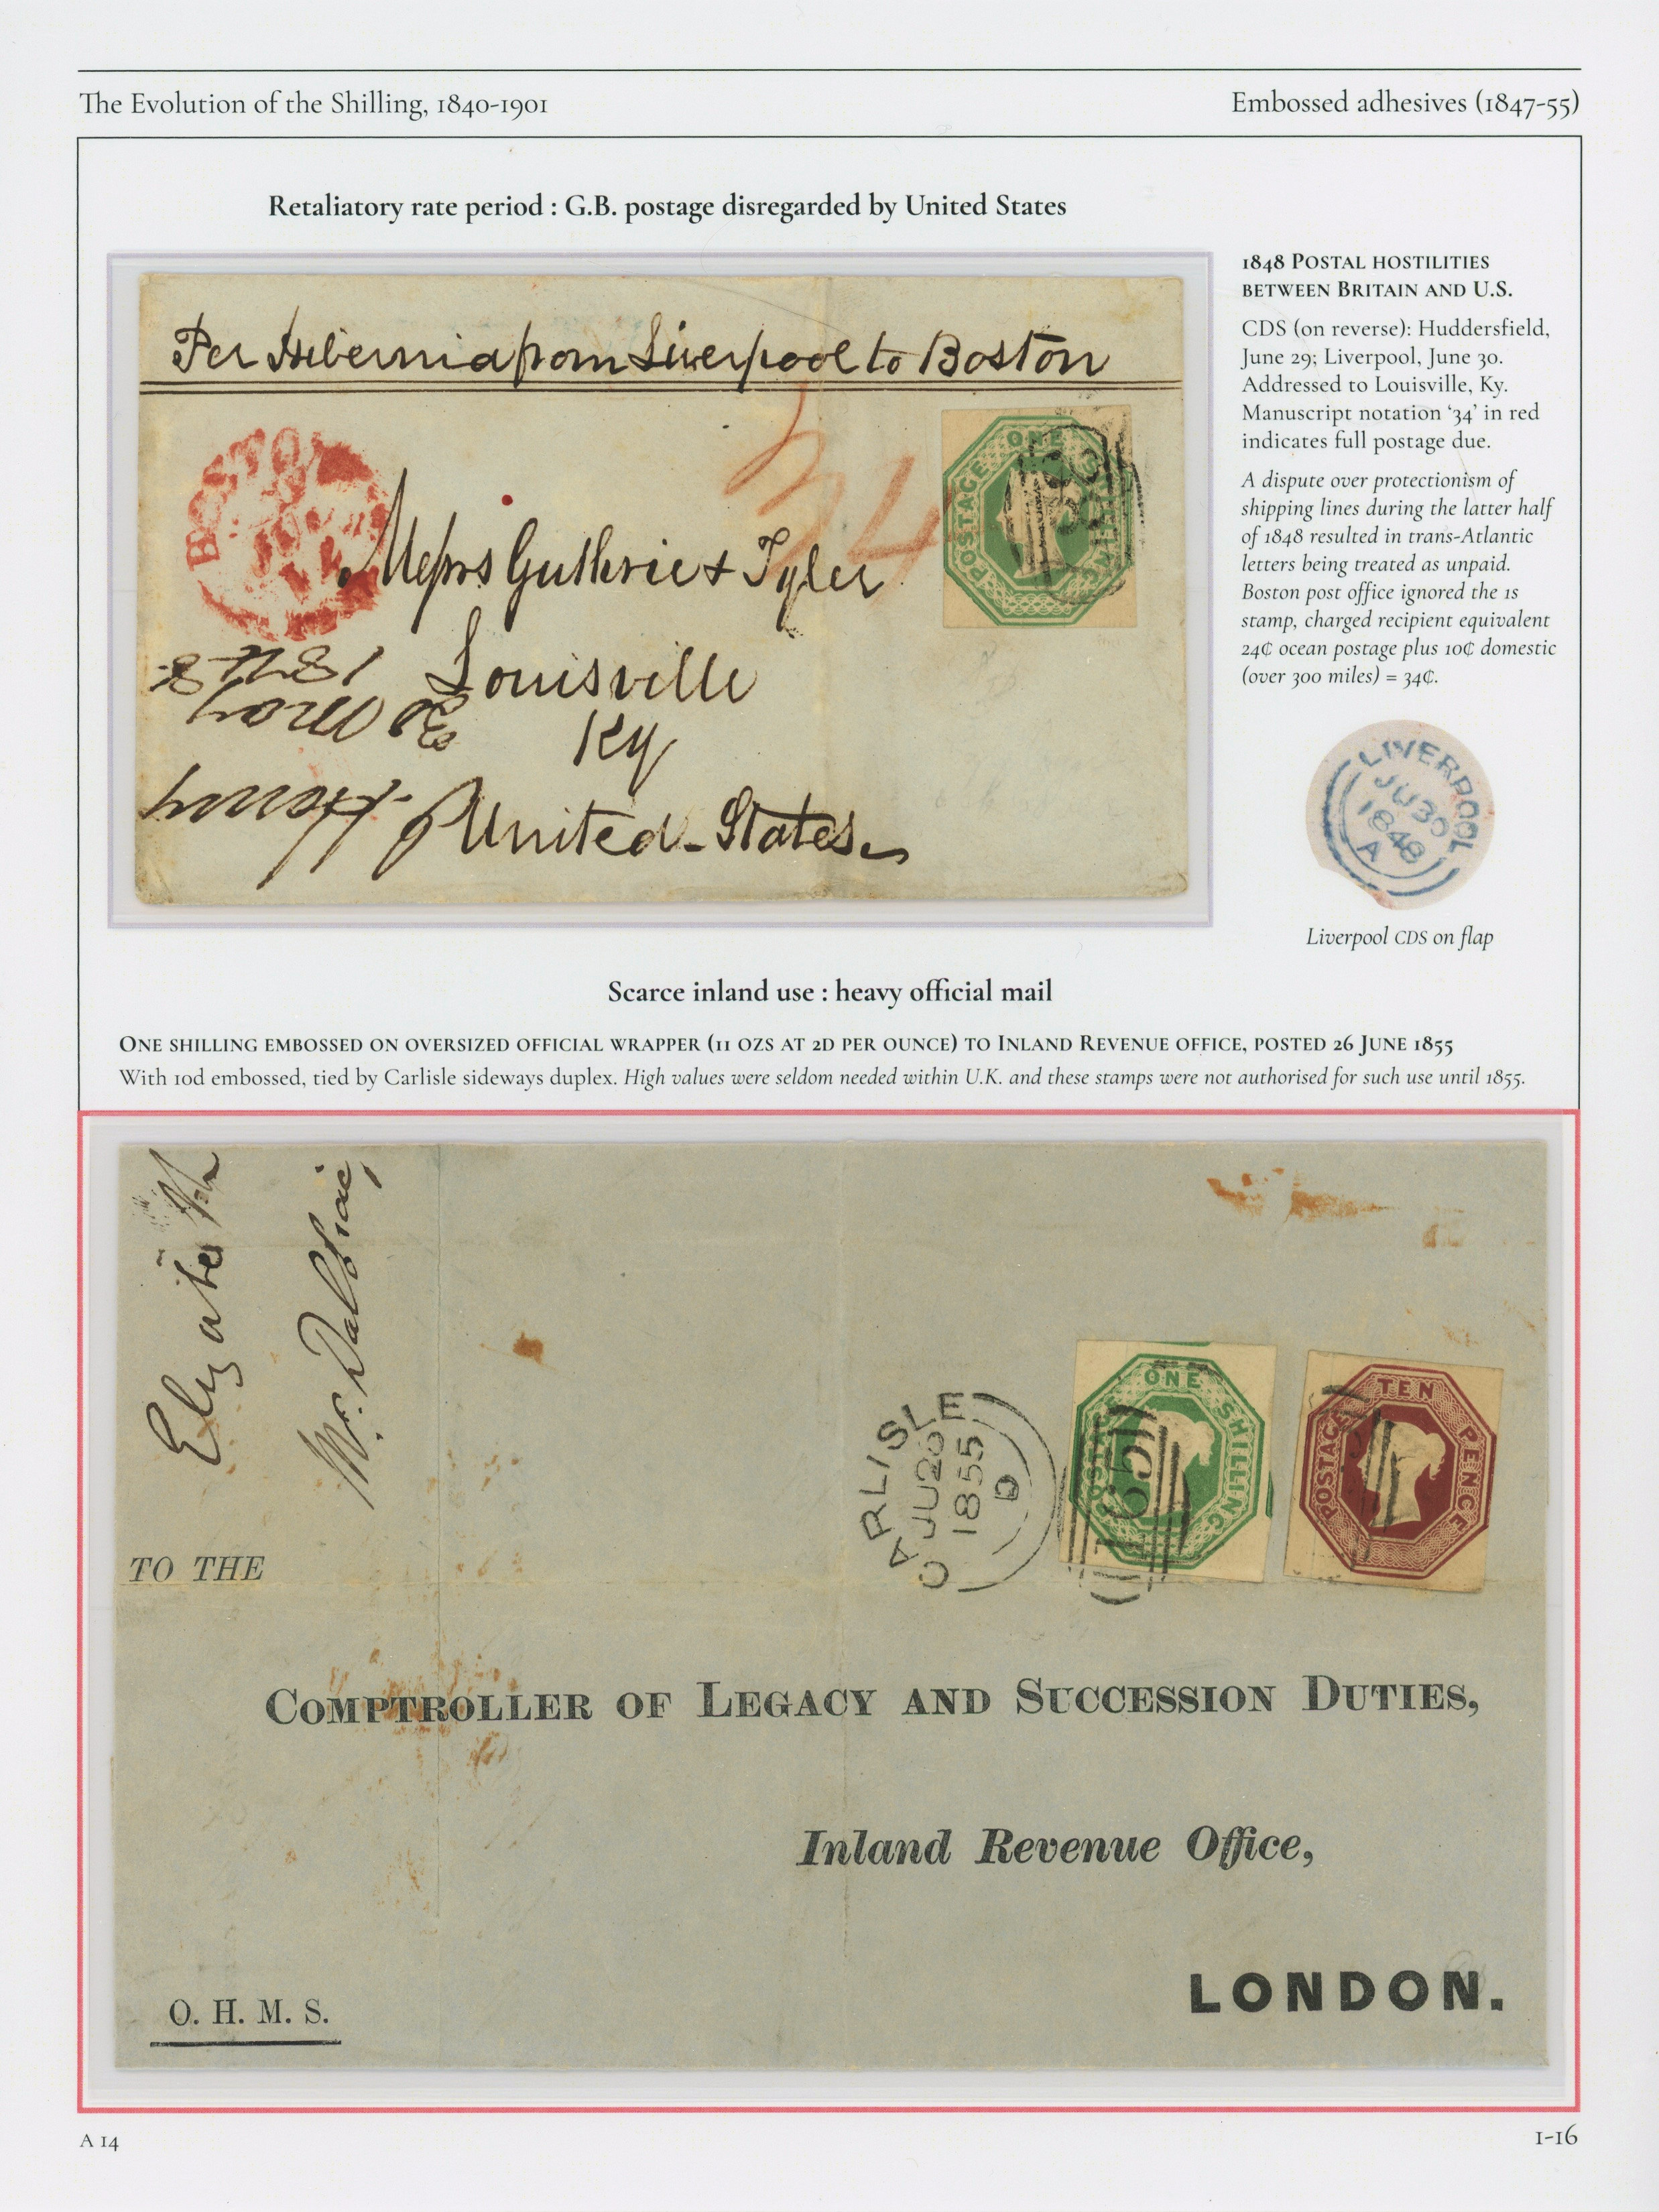 The Evolution of the Shilling, 1840-1901
Embossed adhesives (1847-55)
Retaliatory rate period : G.B. postage disregarded by United States
Per Hibernia from Liverpool to Boston
BOSTON
34
ONE SHILLING
POSTAGE
Messrs Guthrie & Tyler
Louisville
Ky
United-States
30 May
1848
1848 POSTAL HOSTILITIES
BETWEEN BRITAIN AND U.S.
CDS (on reverse): Huddersfield,
June 29; Liverpool, June 30.
Addressed to Louisville, Ky.
Manuscript notation ‘34’ in red
indicates full postage due.
A dispute over protectionism of
shipping lines during the latter half
of 1848 resulted in trans-Atlantic
letters being treated as unpaid.
Boston post office ignored the 1s
stamp, charged recipient equivalent
24₵ ocean postage plus 10₵ domestic
(over 300 miles) = 34₵.
LIVERPOOL
JU30
1848
A
Liverpool CDS on flap
Scarce inland use : heavy official mail
ONE SHILLING EMBOSSED ON OVERSIZED OFFICIAL WRAPPER (11 OZS AT 2D PER OUNCE) TO INLAND REVENUE OFFICE, POSTED 26 JUNE 1855
With 10d embossed, tied by Carlisle sideways duplex. High values were seldom needed within U.K. and these stamps were not authorised for such use until 1855.
Mr. Dalbiac,
CARLISLE
JU26
1855
D
ONE SHILLING
POSTAGE
165
TEN PENCE
POSTAGE
TO THE
COMPTROLLER OF LEGACY AND SUCCESSION DUTIES,
Inland Revenue Office,
LONDON.
O. H. M. S.
A 14
1-16